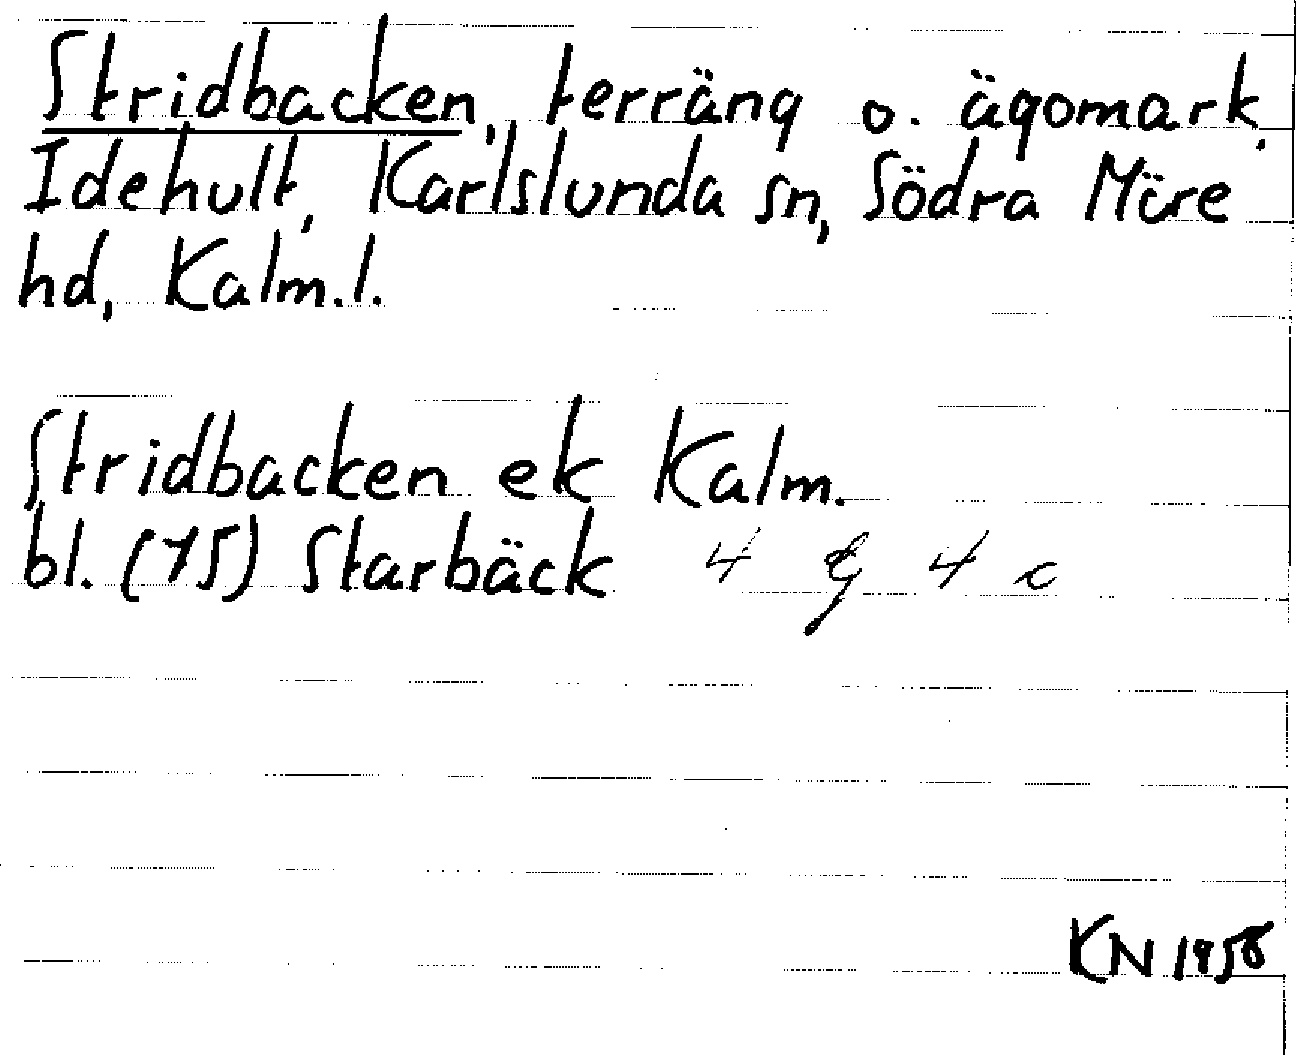 Stridbacken, terräng o. ägomark.
Idehult, Karlslunda sn, Södra Möre
hd, Kalm.l.
Stridbacken ek Kalm.
bl. (75) Starbäck 4 g 4 c
KN 1958